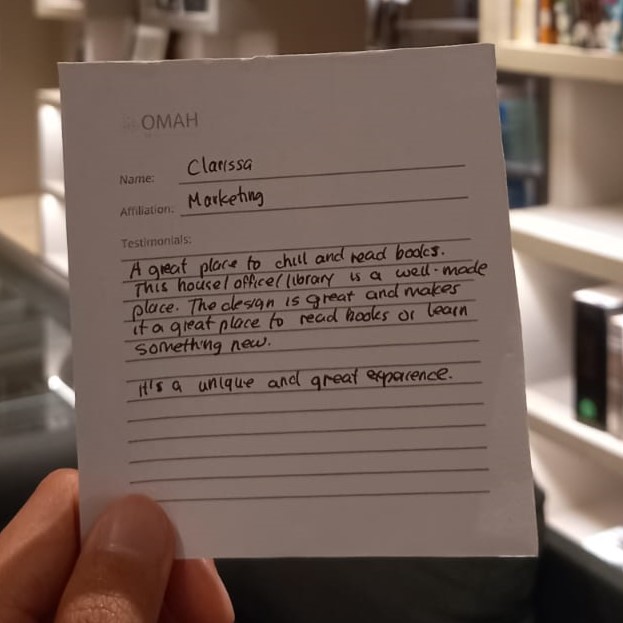 OMAH
Name: Clarissa
Affiliation: Marketing
Testimonials:
A great place to chill and read books.
This house/office/library is a well-made
place. The design is great and makes
it a great place to read books or learn
something new.
It's a unique and great experience.